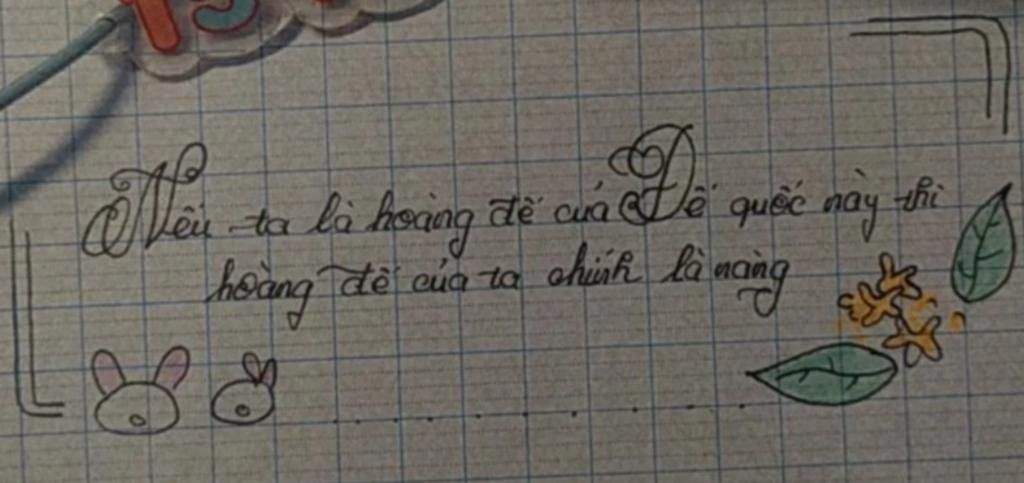 Nếu ta là hoàng đế của Đế quốc này thì
hoàng đế của ta chính là nàng